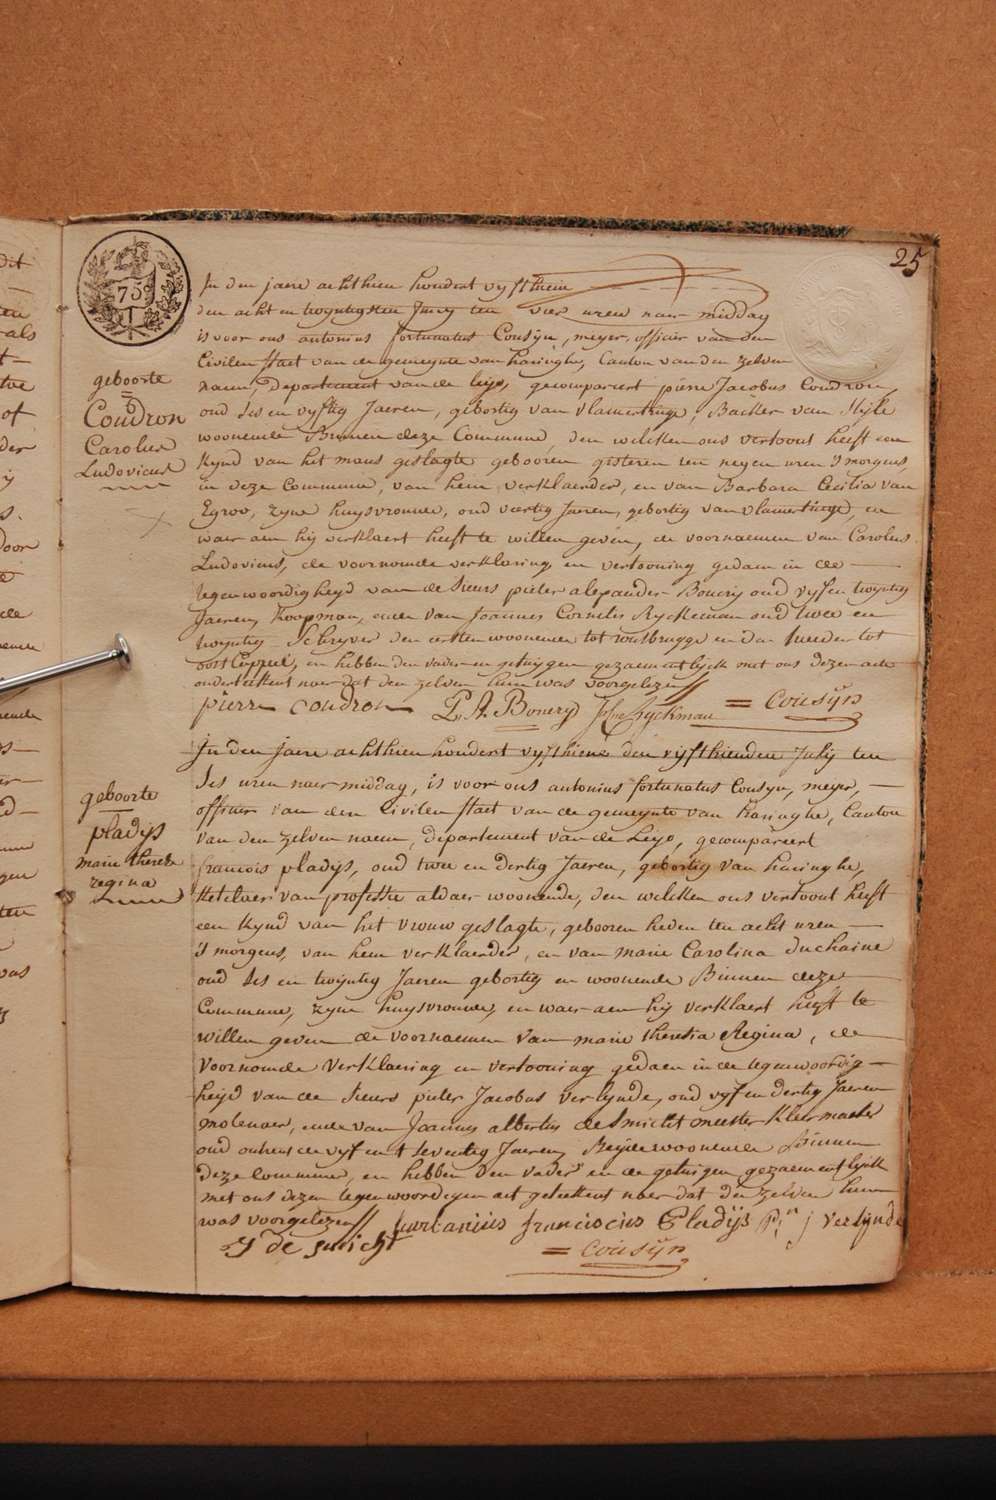 25
75
geboorte
Coudron
Carolus
Ludovicus
In den jaere achthien hondert vyfthien
den acht en twyntigsten Juny ten vier uren naer middag
is voor ons antonius fortunatus Cousyn, meyer, officier van den
Civilen staet van de gemeynte van haringhe, Canton van den zelven
naem, departement van de leye, gecompareert pierre Jacobus Coudron,
oud Ses en vyftig Jaeren, gebortig van vlamertinge, Backer van Stijle
woonende Binnen deze Commune, den welcken ons vertoont heeft een
kynd van het mans geslagte gebooren gisteren ten negen uren 's morgens,
in deze Commune, van hem verklaerder, en van Barbara Cecilia van
Egroo, zyne huysvrouwe, oud viertig Jaeren, gebortig van vlamertinge, en
waer aen hij verklaert heeft te willen geven, de voornaemen van Carolus
Ludovicus, de voornomde verklaring en vertooning gedaen in de
tegenwoordigheyd van de Sieurs pieter alexander Bouery oud vyf en twyntig
Jaeren, koopman, ende van Joannes Cornelis Ryckeman oud twee en
twyntig Schryver den eersten woonende tot rousbrugge en den tweeden tot
oost Cappel, en hebben den vader en getuygen gezaementlyck met ons dezen acte
onderteekent naer dat den zelven hun was voorgelezen
pierre coudron P. A. Bouery Ryckman = Cousijn
geboorte
pladijs
marie therese
regina
In den jaere achthien hondert vyfthiene den vyfthienden July ten
Ses uren naer middag, is voor ons antonius fortunatus Cousyn, meyer,
officier van den Civilen staet van de gemeynte van haringhe, Canton
van den zelven naem, departement van de Leye, gecompareert
francois pladijs, oud twee en dertig Jaeren, gebortig van haringhe,
ketelaer van professie aldaer woonende, den welcken ons vertoont heeft
een kynd van het vrouw geslagte, gebooren heden ten acht uren
's morgens, van hem verklaerder, en van marie Carolina duchaine
oud Ses en twyntig Jaeren gebortig en woonende Binnen deze
Commune, zyne huysvrouwe, en waer aen hij verklaert heeft te
willen geven de voornaemen van marie theresia Regina, de
voornomde verklaering en vertooning gedaen in de tegenwoordig
heijd van de Sieurs pieter Jacobus verlijnde, oud vyf en dertig Jaeren
molenaer, ende van Joannes albertus de Smicht meester kleermaeker
oud ontrent de vyf en t seventig Jaeren, Beyde woonende Binnen
deze Commune, en hebben den vader en de getuigen gezaementlijk
met ons dezen tegenwoordigen act geteekent naer dat den zelven hun
was voorgelezen franciscius Pladijs P. j verlijnde
J de smicht = Cousijn